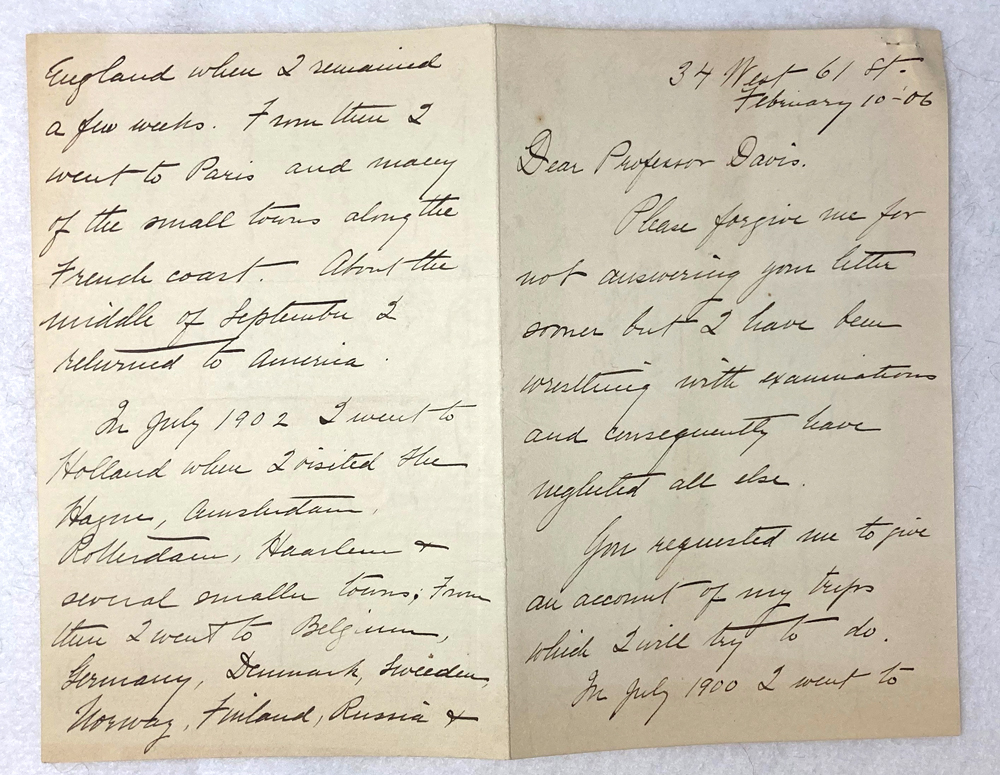 34 West 61 St.
February 10-06
Dear Professor Davis.
Please forgive me for
not answering your letter
sooner but I have been
wrestling with examinations
and consequently have
neglected all else.
You requested me to give
an account of my trips
which I will try to do.
In July 1900 I went to
England where I remained
a few weeks. From there I
went to Paris and many
of the small towns along the
French coast. About the
middle of September I
returned to America.
In July 1902 I went to
Holland where I visited the
Hague, Amsterdam,
Rotterdam, Haarlem &
several smaller towns; From
there I went to Belgium,
Germany, Denmark, Sweeden,
Norway, Finland, Russia &